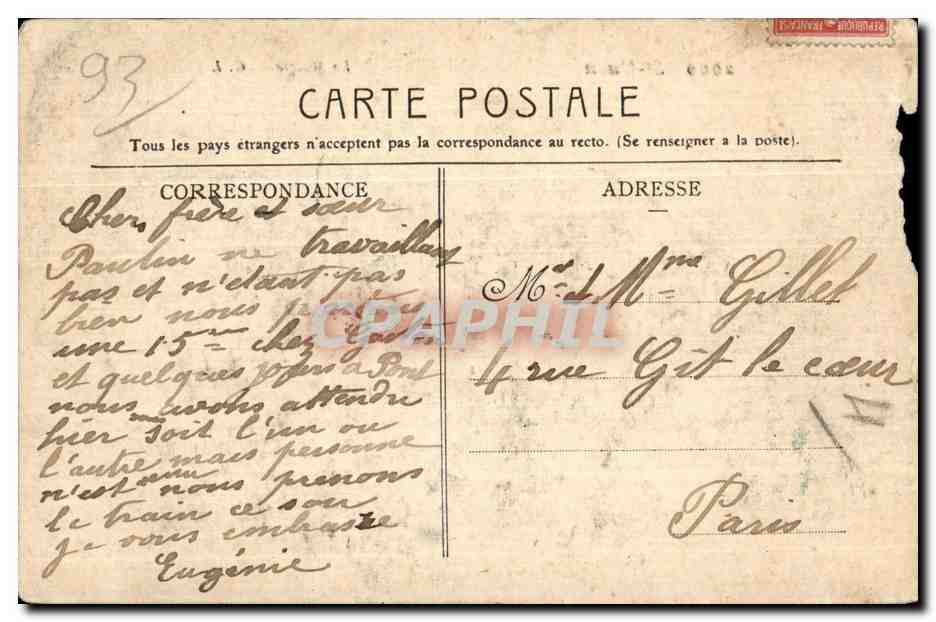 RÉPUBLIQUE FRANÇAISE
93
CARTE POSTALE
Tous les pays étrangers n'acceptent pas la correspondance au recto. (Se renseigner a la poste).
CORRESPONDANCE
Chers frère et sœur
Paulin ne travaillant
pas et n'étant pas
bien nous
une 15ne chez
et quelques jours a Pont
nous avons attendu
hier soit l'un ou
l'autre mais personne
n'est venu nous prenons
le train ce soir
je vous embrasse
Eugénie
ADRESSE
Mr & Mme Gillet
4 rue Gît le cœur
Paris
CPAPHIL